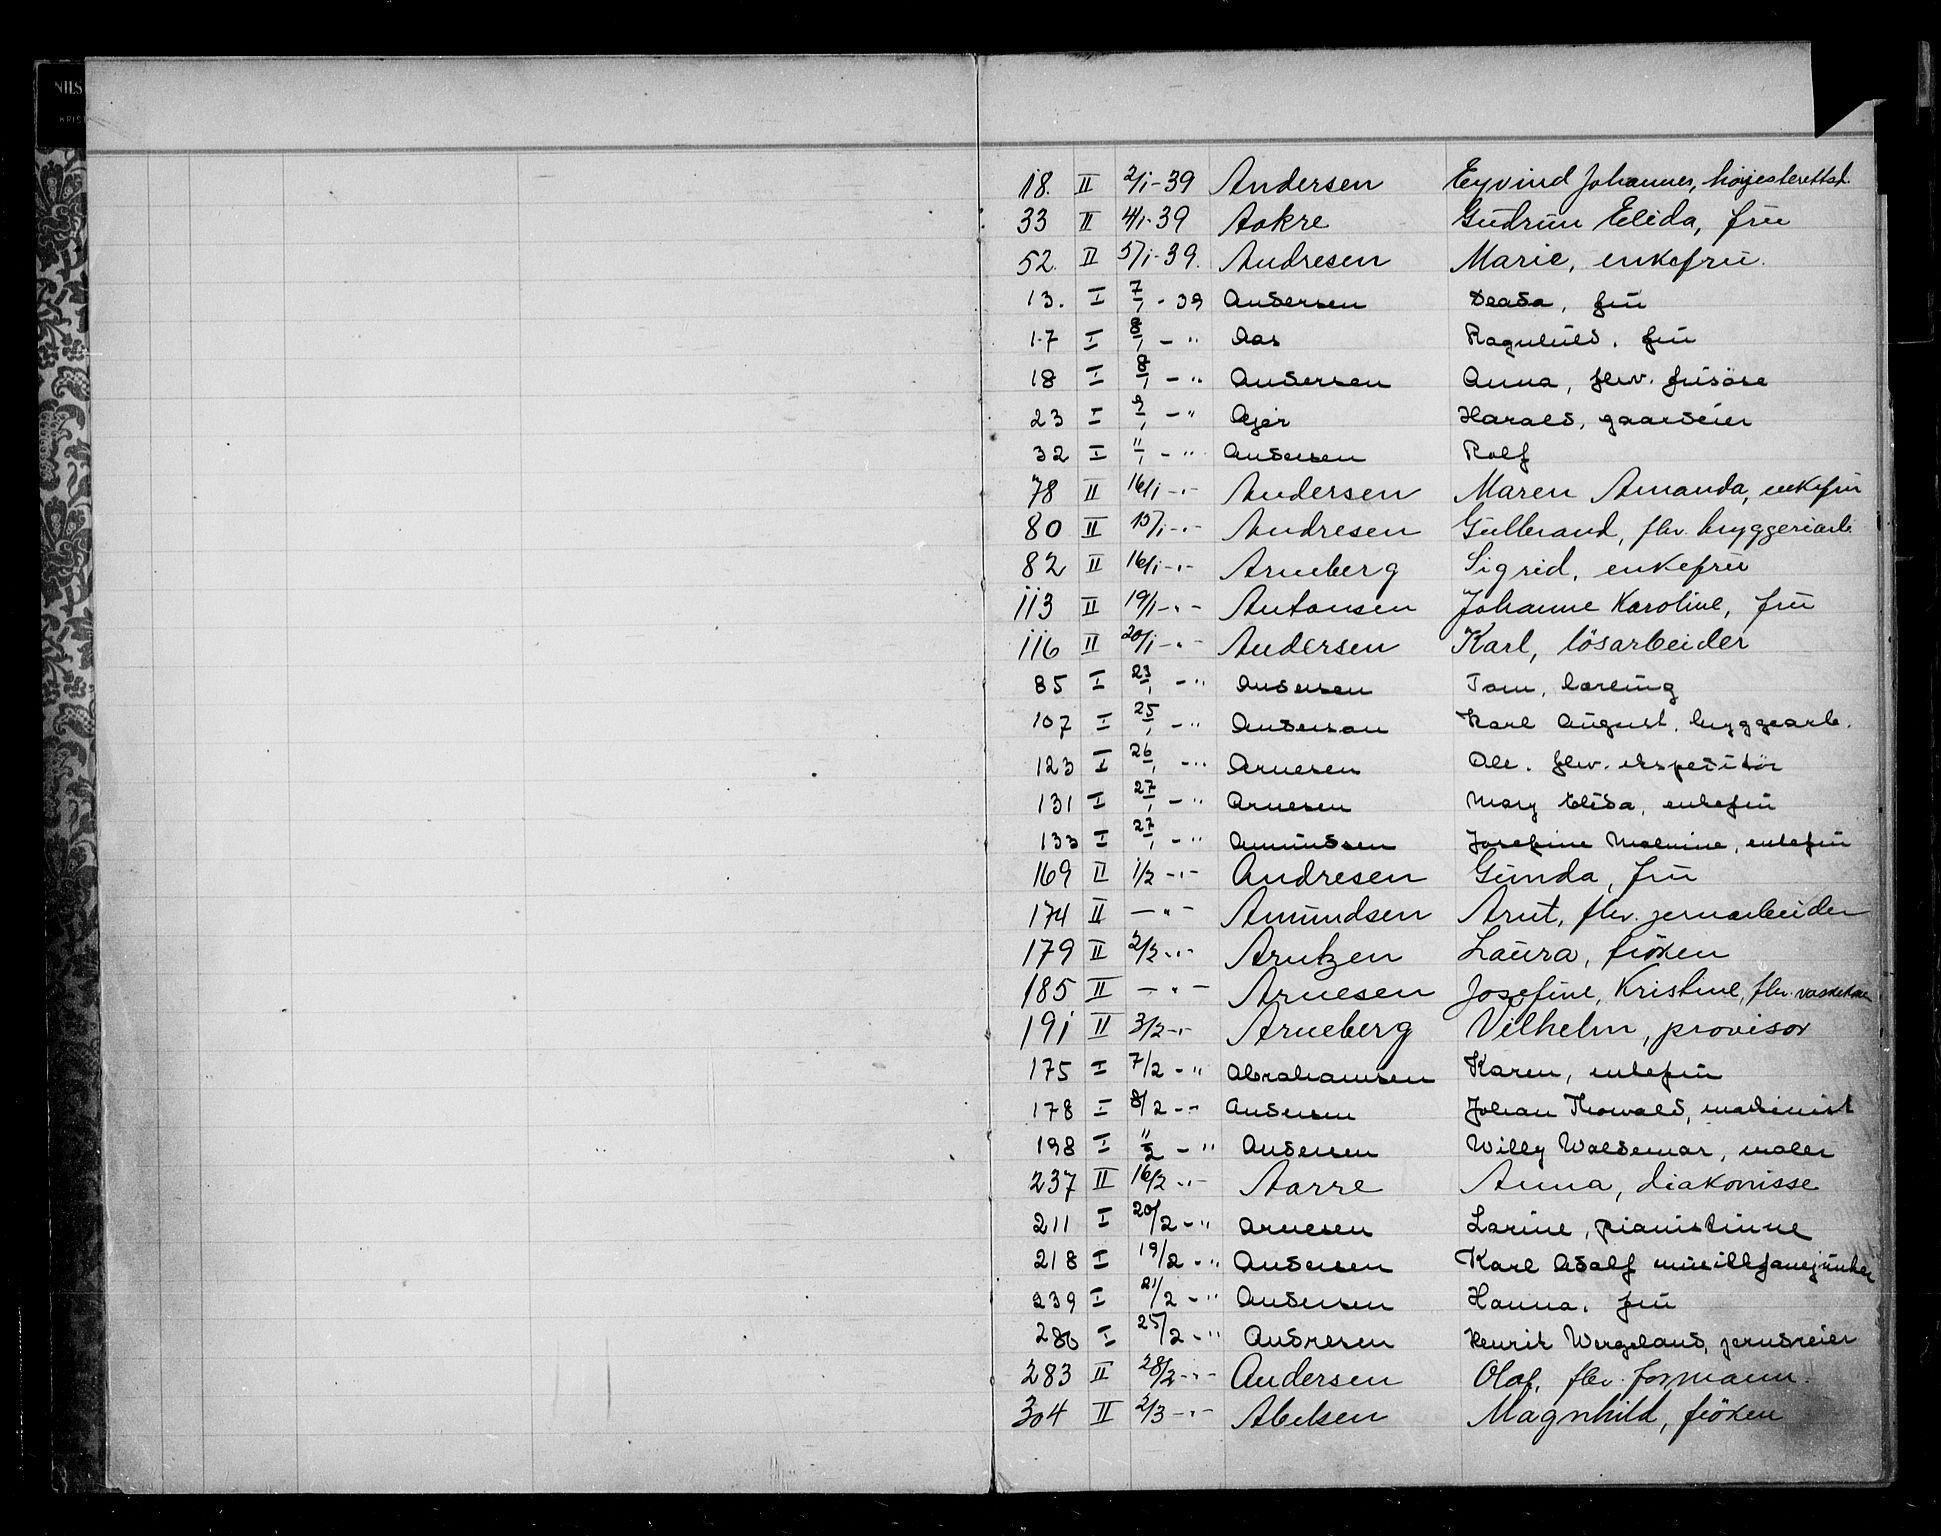 NILS
KRIST
18. II 2/1-39 Andersen Eyvind Johannes, höjesterettsd.
33 II 4/1-39 Aakre Gudrun Elida, frü
52. II 5/1-39. Andresen Marie, enkefrü.
13. I 7/1 - 39 Andersen frü
17 I 8/1 - " Aas Ragnhild, frü
18 I 8/1 - " Andersen Anna, fhv. frisöse
23 I 9/1 - " Ajer Harald, gaardeier
32 I 11/1 - " Andersen Rolf
78 II 16/1 -"- Andersen Maren Amanda, enkefrü
80 II 15/1 -"- Andresen Gulbrand, fhv. bryggeriarb.
82 II 16/1 -"- Arneberg Sigrid, enkefrü
113 II 19/1 -"- Antonsen Johanne Karoline, frü
116 II 20/1 -"- Andersen Karl, lösarbeider
85 I 23/1 - " Andersen Tom, lærling
107 I 25/1 - " Anderson Karl August, byggearb.
123 I 26/1 - " Arnesen Ole, fhv. ekspeditör
131 I 27/1 - " Arnesen Mary Elida, enkefrü
133 I 27/1 - " Amündsen Josefine Malvine, enkefrü
169 II 1/2 -"- Andresen Gunda, frü
174 II -"- Amundsen Arnt, fhv. jernarbeider
179 II 2/2 -"- Arntzen Laura, fröken
185 II -"- Arnesen Josefine, Kristine, fhv. vaskekone
191 II 3/2 -"- Arneberg Vilhelm, provisor
175 I 7/2 - " Abrahamsen Karen, enkefrü
178 I 8/2 - - Andersen Johan Thorvald, maskinist
198 I 11/2 - " Andersen Willy Waldemar, maler
237 II 16/2 -"- Aarre Anna, diakonisse
211 I 20/2 - " Arnesen Larine, pianistinne
218 I 19/2 - " Andersen Karl Adolf musikkfanejunker
239 I 21/2 - " Andersen Hanna, frü
280 I 25/2 - " Andresen Henrik Wergeland,
283 II 28/2 -"- Andersen Olaf, fhv. formann.
304 II 2/3 -"- Abelsen Magnhild, fröken